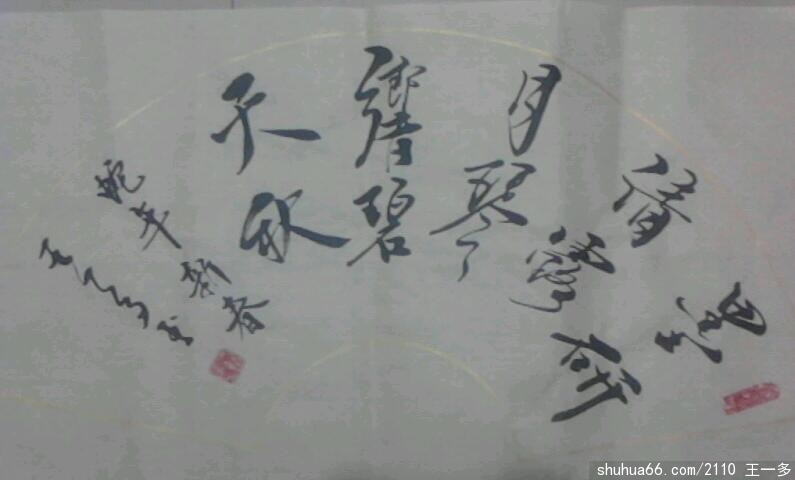 墨
研
清
露
月
琴
響
碧
天
秋
蛇年新春
王一多书
shuhua66.com/2110 王一多